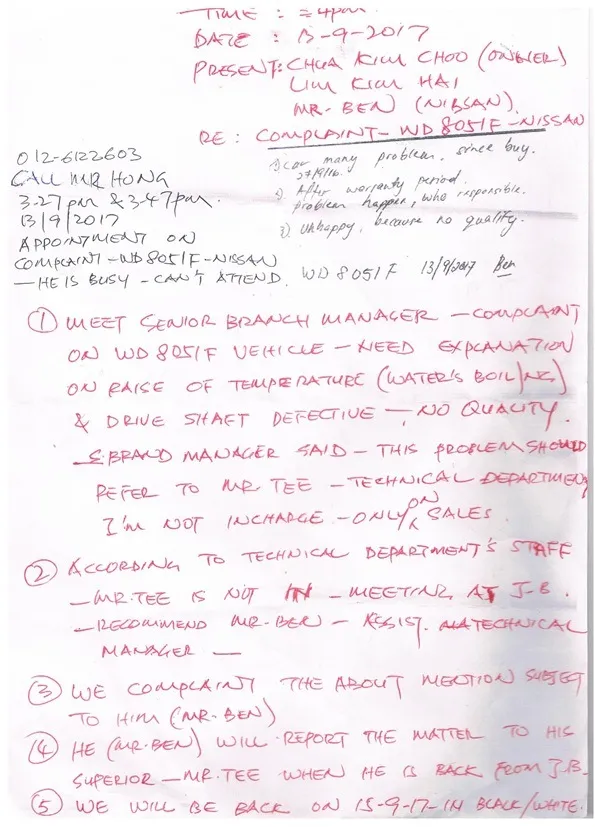 TIME : ± 4pm
DATE : 13-9-2017
PRESENT: CHUA KIM CHOO (OWNER)
LIM KIM HAI
MR. BEN (NISSAN)
RE : COMPLAINT - WD 8051F - NISSAN
012-6122603
CALL MR HONG
3.27 pm & 3.47 pm
13/9/2017
APPOINTMENT ON
COMPLAINT - WD 8051F - NISSAN
- HE IS BUSY - CAN'T ATTEND.
1) Car many problem, since buy.
27/9/16.
2) After warranty period.
problem happen, who responsible.
3) Unhappy, because no quality.
WD 8051F 13/9/2017 Ben
① MEET SENIOR BRANCH MANAGER - COMPLAINT
ON WD 8051F VEHICLE - NEED EXPLANATION
ON RAISE OF TEMPERATURE (WATER'S BOILING)
& DRIVE SHAFT DEFECTIVE - NO QUALITY.
S. BRAND MANAGER SAID - THIS PROBLEM SHOULD
REFER TO MR. TEE - TECHNICAL DEPARTMENT
I'm NOT INCHARGE - ONLY ON SALES.
② ACCORDING TO TECHNICAL DEPARTMENT'S STAFF
- MR. TEE IS NOT IN - MEETING AT J-B.
- RECOMMEND MR. BEN - ASSIST. TECHNICAL
MANAGER -
③ WE COMPLAINT THE ABOUT MENTION SUBJECT
TO HIM (MR. BEN)
④ HE (MR. BEN) WILL REPORT THE MATTER TO HIS
SUPERIOR - MR. TEE WHEN HE IS BACK FROM J.B.
⑤ WE WILL BE BACK ON 15-9-17 IN BLACK/WHITE.